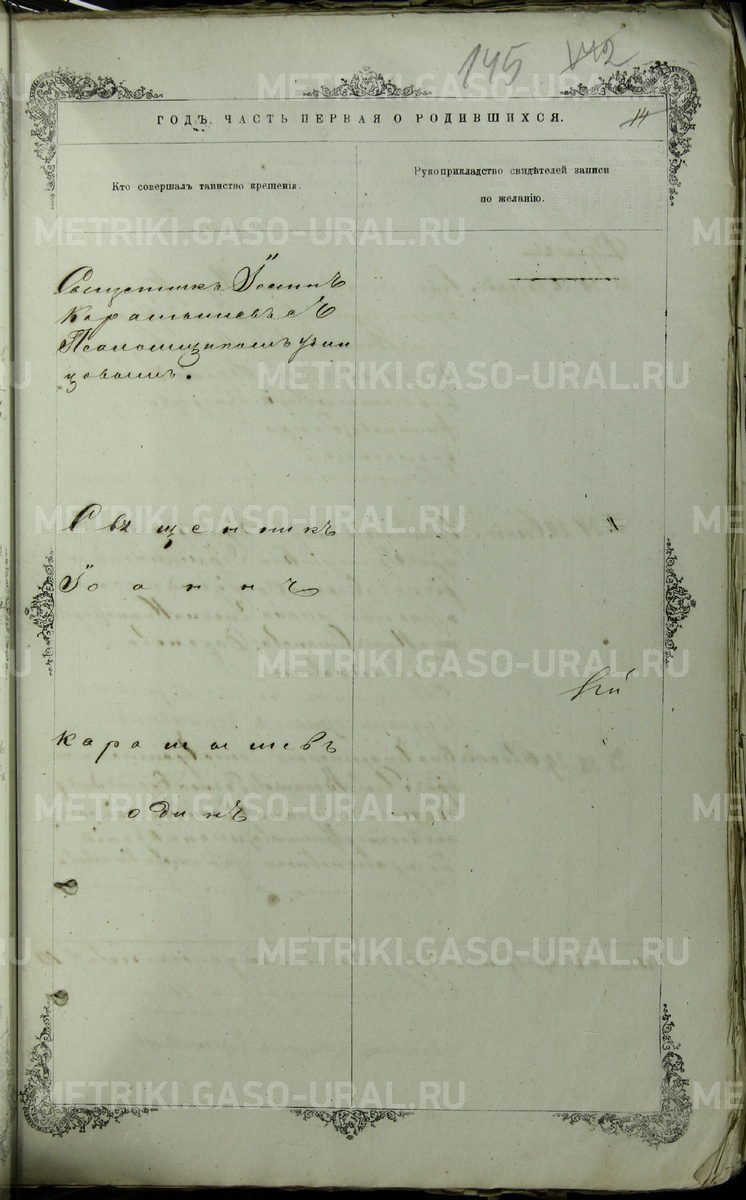 145 142
14
ГОДЪ. ЧАСТЬ ПЕРВАЯ О РОДИВШИХСЯ.
Кто совершалъ таинство крещенія.
Рукоприкладство свидѣтелей записи
по желанію.
Священникъ Іоаннъ
Карамышевъ съ
Псаломщикомъ
Священникъ
Іоаннъ
Карамышевъ
одинъ
METRIKI.GASO-URAL.RU